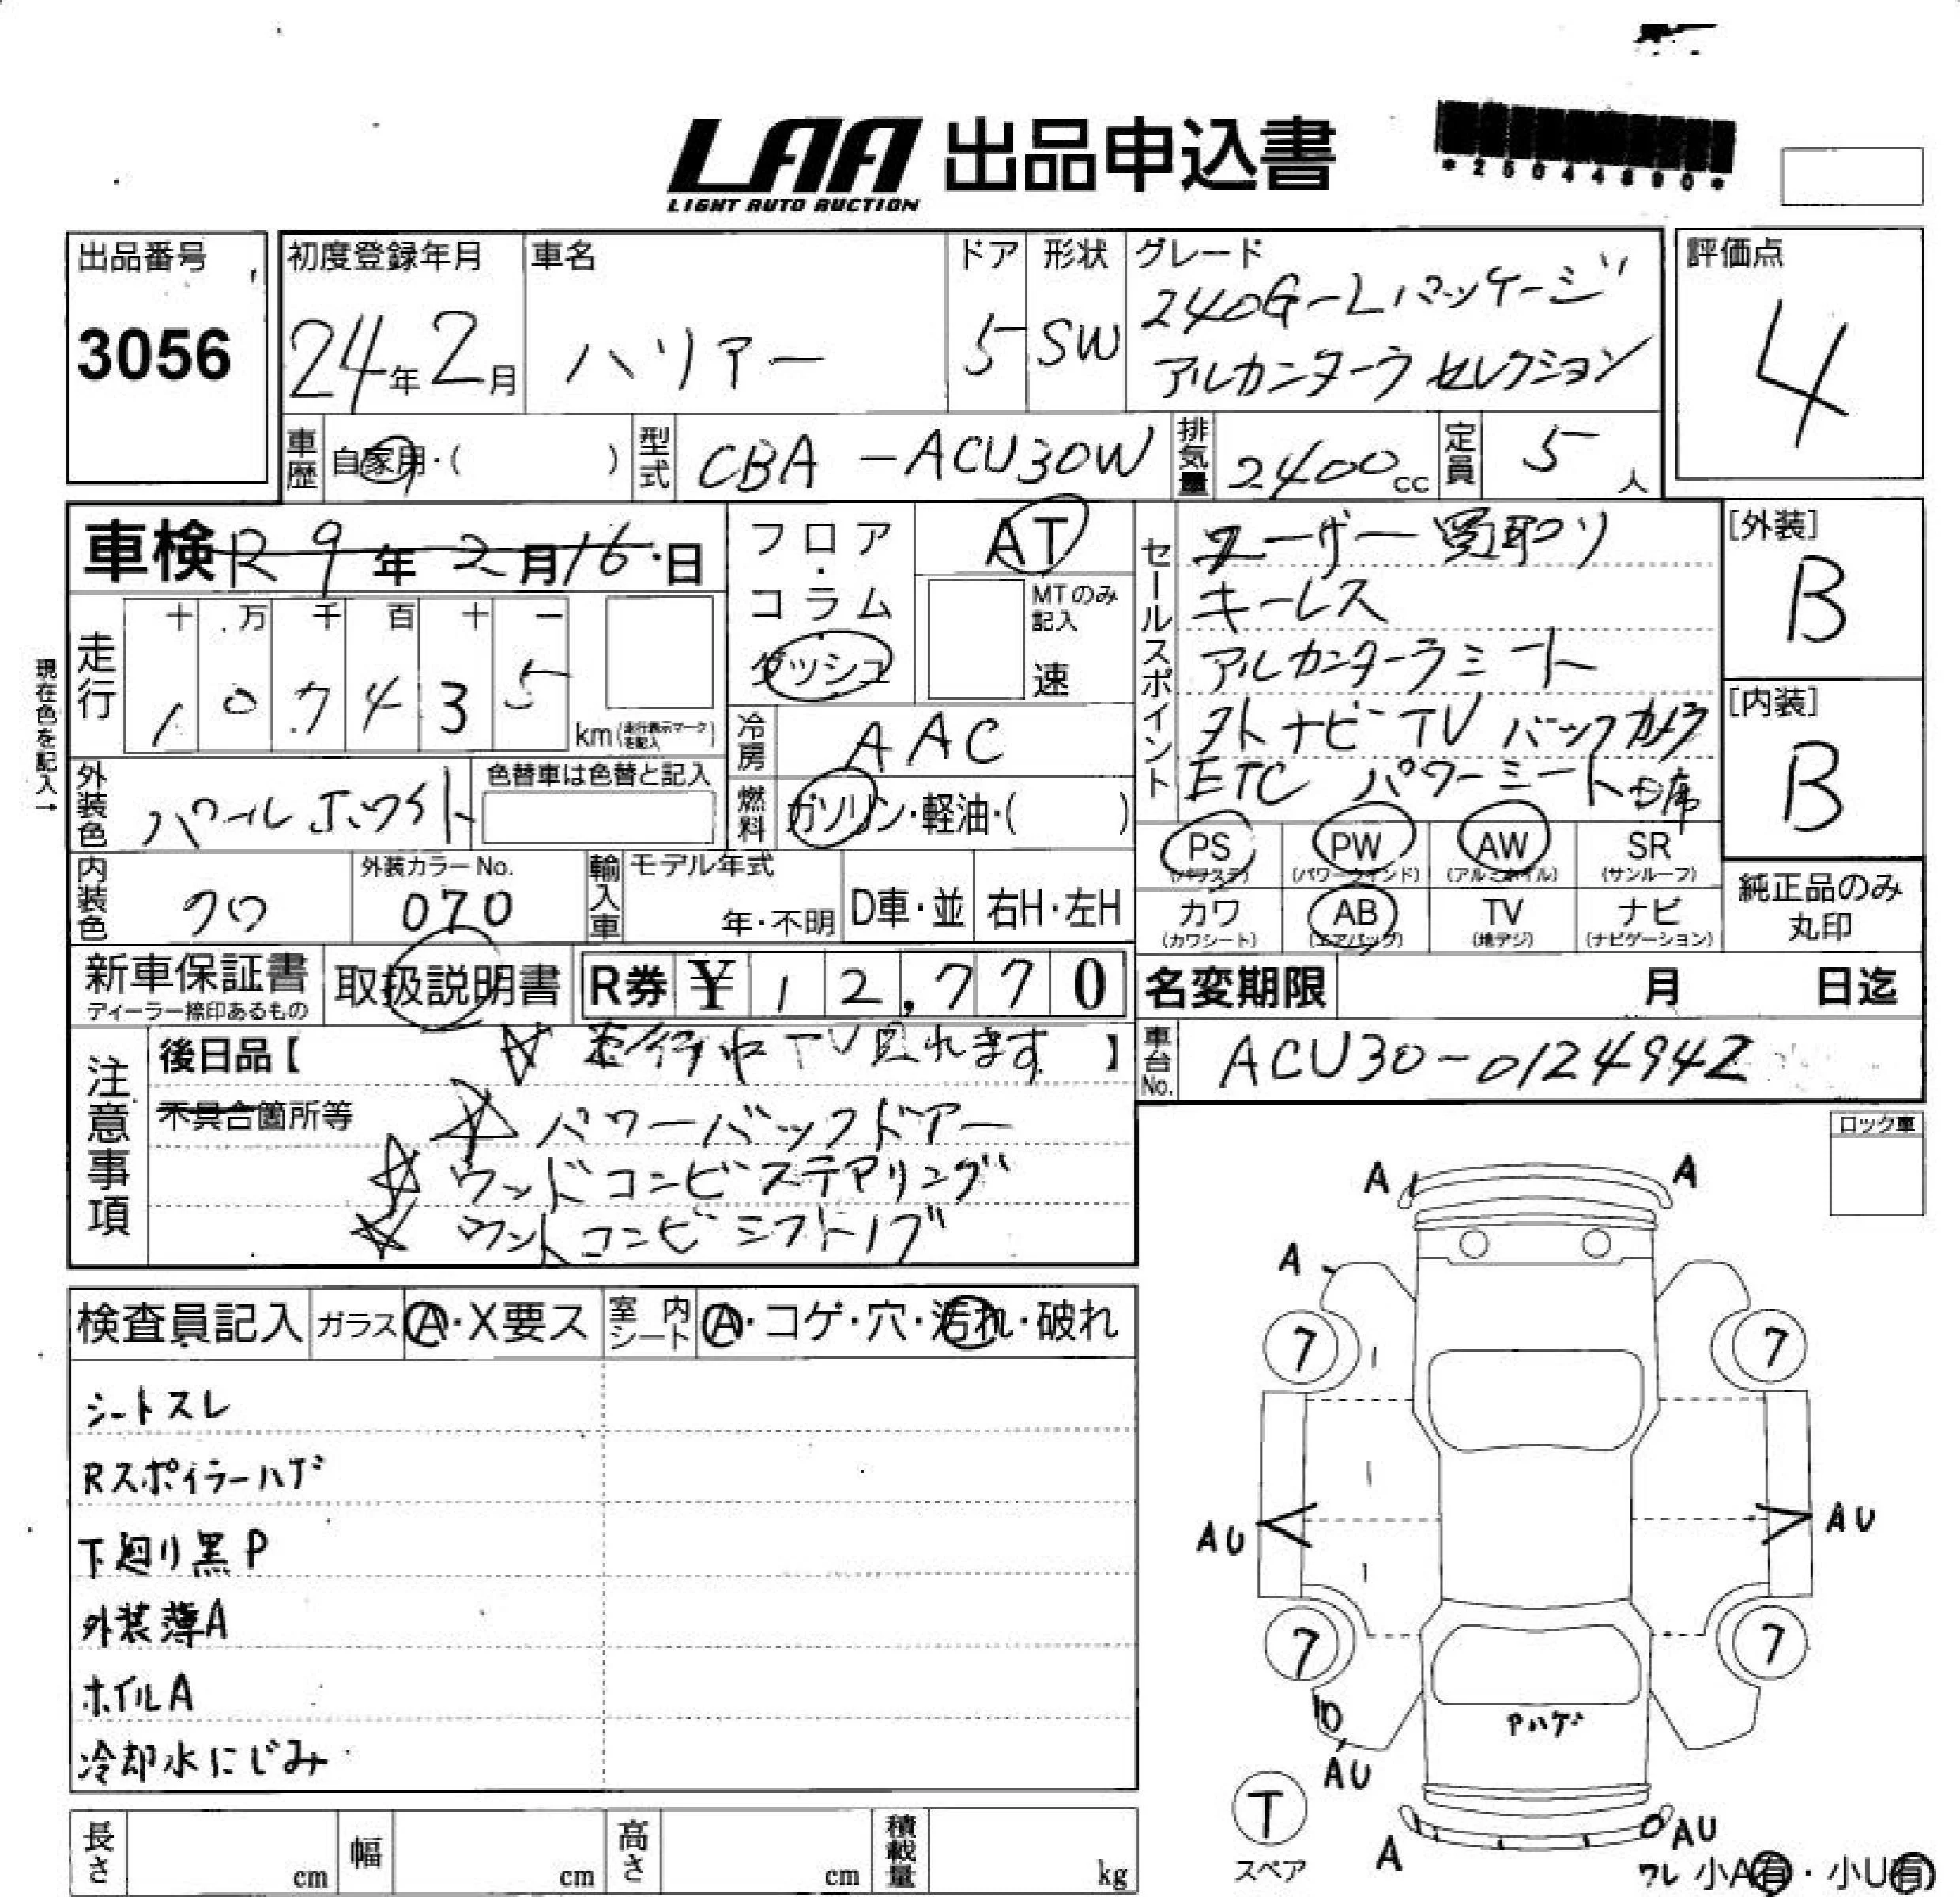 LAA 出品申込書
LIGHT AUTO AUCTION
*25044890*
出品番号
3056
初度登録年月
24年2月
車名
ハリアー
ドア
5
形状
SW
グレード
240G-Lパッケージ
アルカンターラ セレクション
評価点
4
車歴 自家用・( )
型式 CBA-ACU30W
排気量 2400cc
定員 5人
車検 R9年2月16日
フロア・コラム・ダッシュ
AT
MTのみ記入
速
現在色を記入→
走行
十 万 千 百 十 一
1 0 7 4 3 5
km(走行表示マークを記入)
冷房 AAC
燃料 ガソリン・軽油・( )
外装色 パールホワイト
色替車は色替と記入
内装色 クロ
外装カラーNo.
070
輸入車 モデル年式
年・不明
D車・並
右H・左H
セールスポイント
ユーザー買取り
キーレス
アルカンターラシート
ストナビ TV バックカメラ
ETC パワーシート
[外装]
B
[内装]
B
PS (パワステ)
PW (パワーウインド)
AW (アルミホイル)
SR (サンルーフ)
カワ (カワシート)
AB (エアバッグ)
TV (地デジ)
ナビ (ナビゲーション)
純正品のみ
丸印
新車保証書
ディーラー捺印あるもの
取扱説明書
R券 ¥12,770
名変期限 月 日迄
車台No. ACU30-0124942
注意事項
後日品【 ☆ 走行中TV見れます 】
不具合箇所等
☆ パワーバックドアー
☆ ウッドコンビステアリング
☆ ウッドコンビシフトノブ
ロック車
検査員記入
ガラス A・X要ス
室内シート A・コゲ・穴・汚れ・破れ
シートスレ
Rスポイラーハゲ
下廻り黒P
外装薄A
ホイルA
冷却水にじみ
A A
A
7 7
AU AU
7 7
Pハゲ
AU
T
スペア
A AU
ワレ 小A有・小U有
長さ cm
幅 cm
高さ cm
積載量 kg